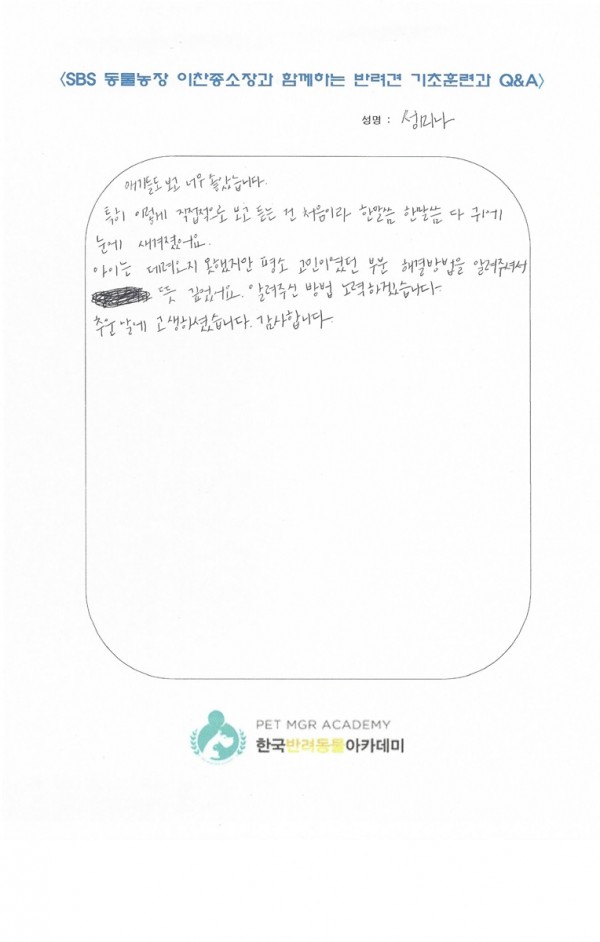 <SBS 동물농장 이찬종소장과 함께하는 반려견 기초훈련과 Q&A>
성명 : 성미나
애기들도 보고 너무 좋았습니다.
특히 이렇게 직접적으로 보고 듣는 건 처음이라 한말씀 한말씀 다 귀에
눈에 새겨졌어요.
아이는 데려오지 못했지만 평소 고민이였던 부분 해결방법을 알려주셔서
뜻 깊었어요. 알려주신 방법 노력하겠습니다.
추운 날에 고생하셨습니다. 감사합니다.
PET MGR ACADEMY
한국반려동물아카데미